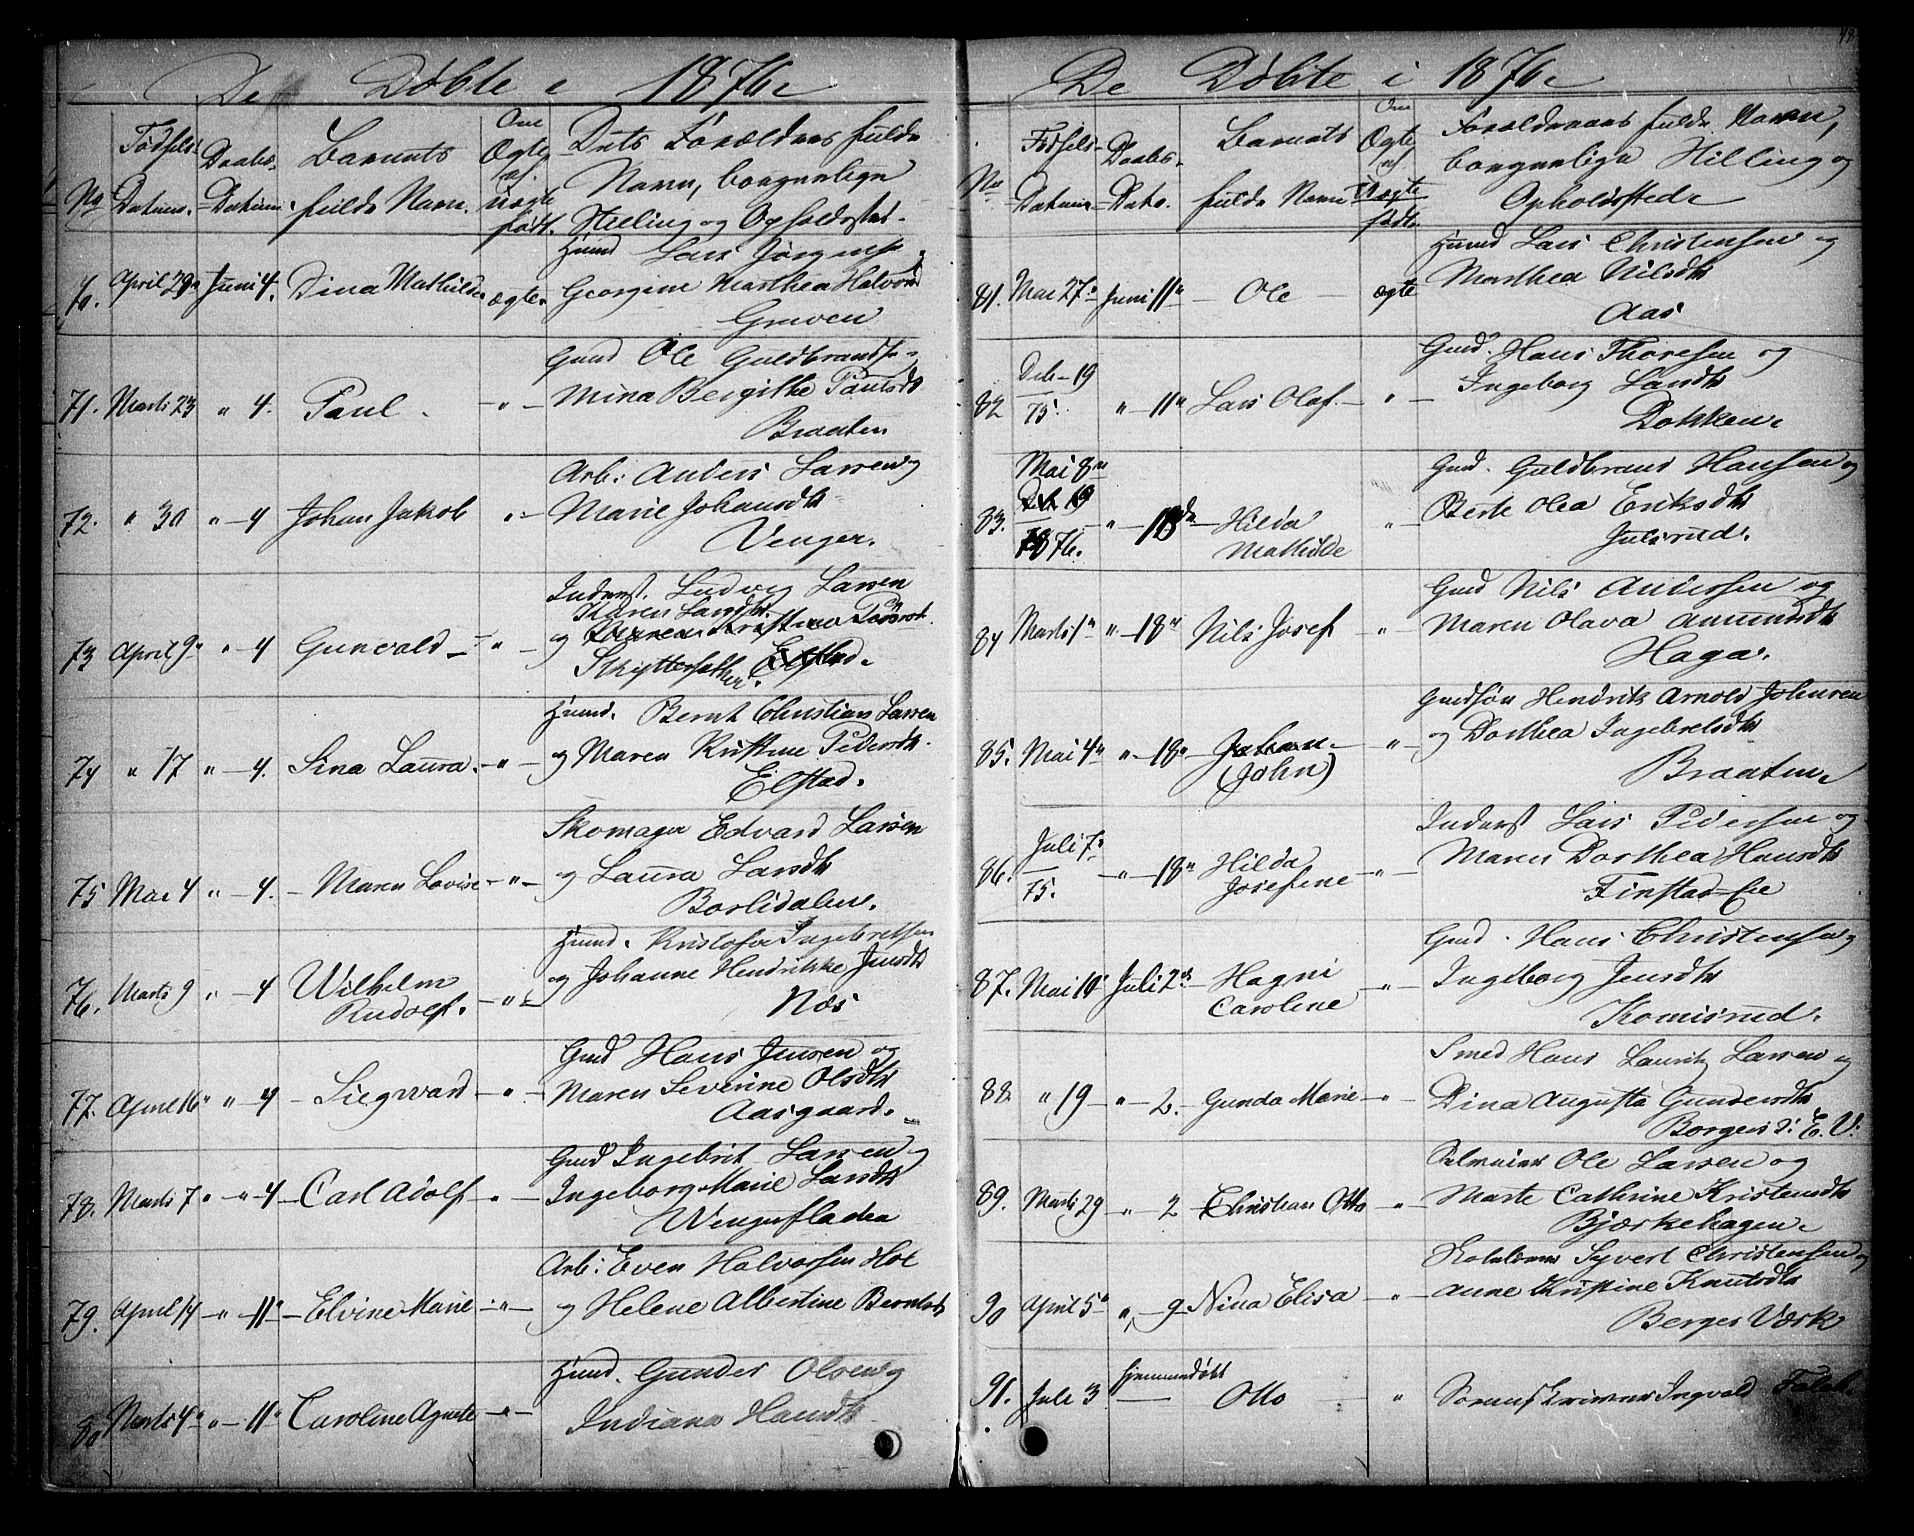 De Døbte i 1876
No
Fødsels Datum.
Daabs-Datum.
Barnets fulde Navn.
Om Ægte el. uægte født.
Dets Forældres fulde
Navn, borgerlige
Stilling og Opholdsted.
70. April 29 Juni 4. Dina Mathilde ægte.
Huusmd Lars Jørgens. og
Georgine Marthea Halvorsd
Gruven
71. Marts 23 " 4. Paul. - " -
Gmd Ole Guldbrands. og
Mina Bergithe Paulsdt
Braaten
72. " 30 " - 4 Johan Jakob " -
Arb: Anders Larsen og
Marie Johansdtr
Venger.
73 April 9 " - 4 Gunvald - " -
Inderst. Ludvig Larsen
Karen Larsdtr.
og
Skytterfelther.
74 " 17 " - 4. Sina Laura. - " -
Huusmd. Bernt Christian Larsen
og Maren Kristine Pedersdtr.
Elstad.
75 Mai 4 " - 4. - Maren Lovise - " -
Skomager Edvard Larsen
og Laura Larsdtr
Borlidalen.
76. Marts 9 " - 4 Wilhelm
Rudolf. - " -
Huusmd. Kristofer Ingebretsen
og Johanne Hendrikke Jensdtr
Næs
77. April 16 " " - 4 - Siegward - " -
Gmd Hans Jensen og
Maren Severine Olsdtr
Aasgaard.
78. Marts 7 " - " - 4 - Carl Adolf - " -
Gmd Ingebrit Larsen og
Ingeborg Marie Larsdtr
Wengerfladen
79. April 14 - " - 11 - Elvine Marie - " -
Arb: Even Halvorsen Hol
og Helene Albertine Berntsdt
80 Marts 4 " - " - 11 Caroline Agnete - " -
Huusmd. Gunder Olsen og
Indiana Hansdtr
De Døbte i 1876
No
Fødsels-Datum
Daabs-Dato.
Barnets fulde Navn
Om Ægte el. Uægte født.
Forældrenes fulde Navn,
borgerlige Stilling og
Opholdsted
81. Mai 27. Juni 11 - Ole - ægte
Huusmd Lars Christensen og
Marthea Nilsdtr
Aas
82 Deb - 19
75. " - 11 Lars Olaf. - " -
Gmd. Hans Thoresen og
Ingeborg Larsdtr
Dokken.
83. Mai 8
1876. " - 18 - Hilda
Mathilde " -
Gmd. Guldbrand Hansen og
Berte Olea Eriksdtr
Julsrud.
84 Marts 1 " - 18 " Nils Josef " -
Gmd Nils Andersen og
Maren Olava Amundsdtr
Haga.
85. Mai 4 " - 18 Johan -
(John) - " -
Gmdsøn Hendrik Arnold Johnsen
og Dorthea Ingebretsdtr
Braaten
86. Juli 7
75. " - 18 Hilda
Josefine - " -
Inderst Lars Pedersen og
Maren Dorthea Hansdtr
Finstad-Eie
87. Mai 10 Juli 2 - Hagni
Caroline - " -
Gmd. Hans Christensen og
Ingeborg Jensdtr
Komisrud.
88. " 19 - " - 2. - Gunda Marie - " -
Smed Hans Lauritz Larsen og
Dina Augusta Gundersdtr
Borgen i E. V.
89. Marts 29 " - 2 - Christian Otto - " -
Selveier Ole Larsen og
Marte Cathrine Kristensdtr
Bjørkehagen.
90 April 5 " - 9 - Nina Elisa " -
Syvert Christensen og
Anne Kristine Knutsdtr
Berger Værk
91. Juli 3 hjemmedøbt - Otto "
Sorenskriver Ingvald Falch.